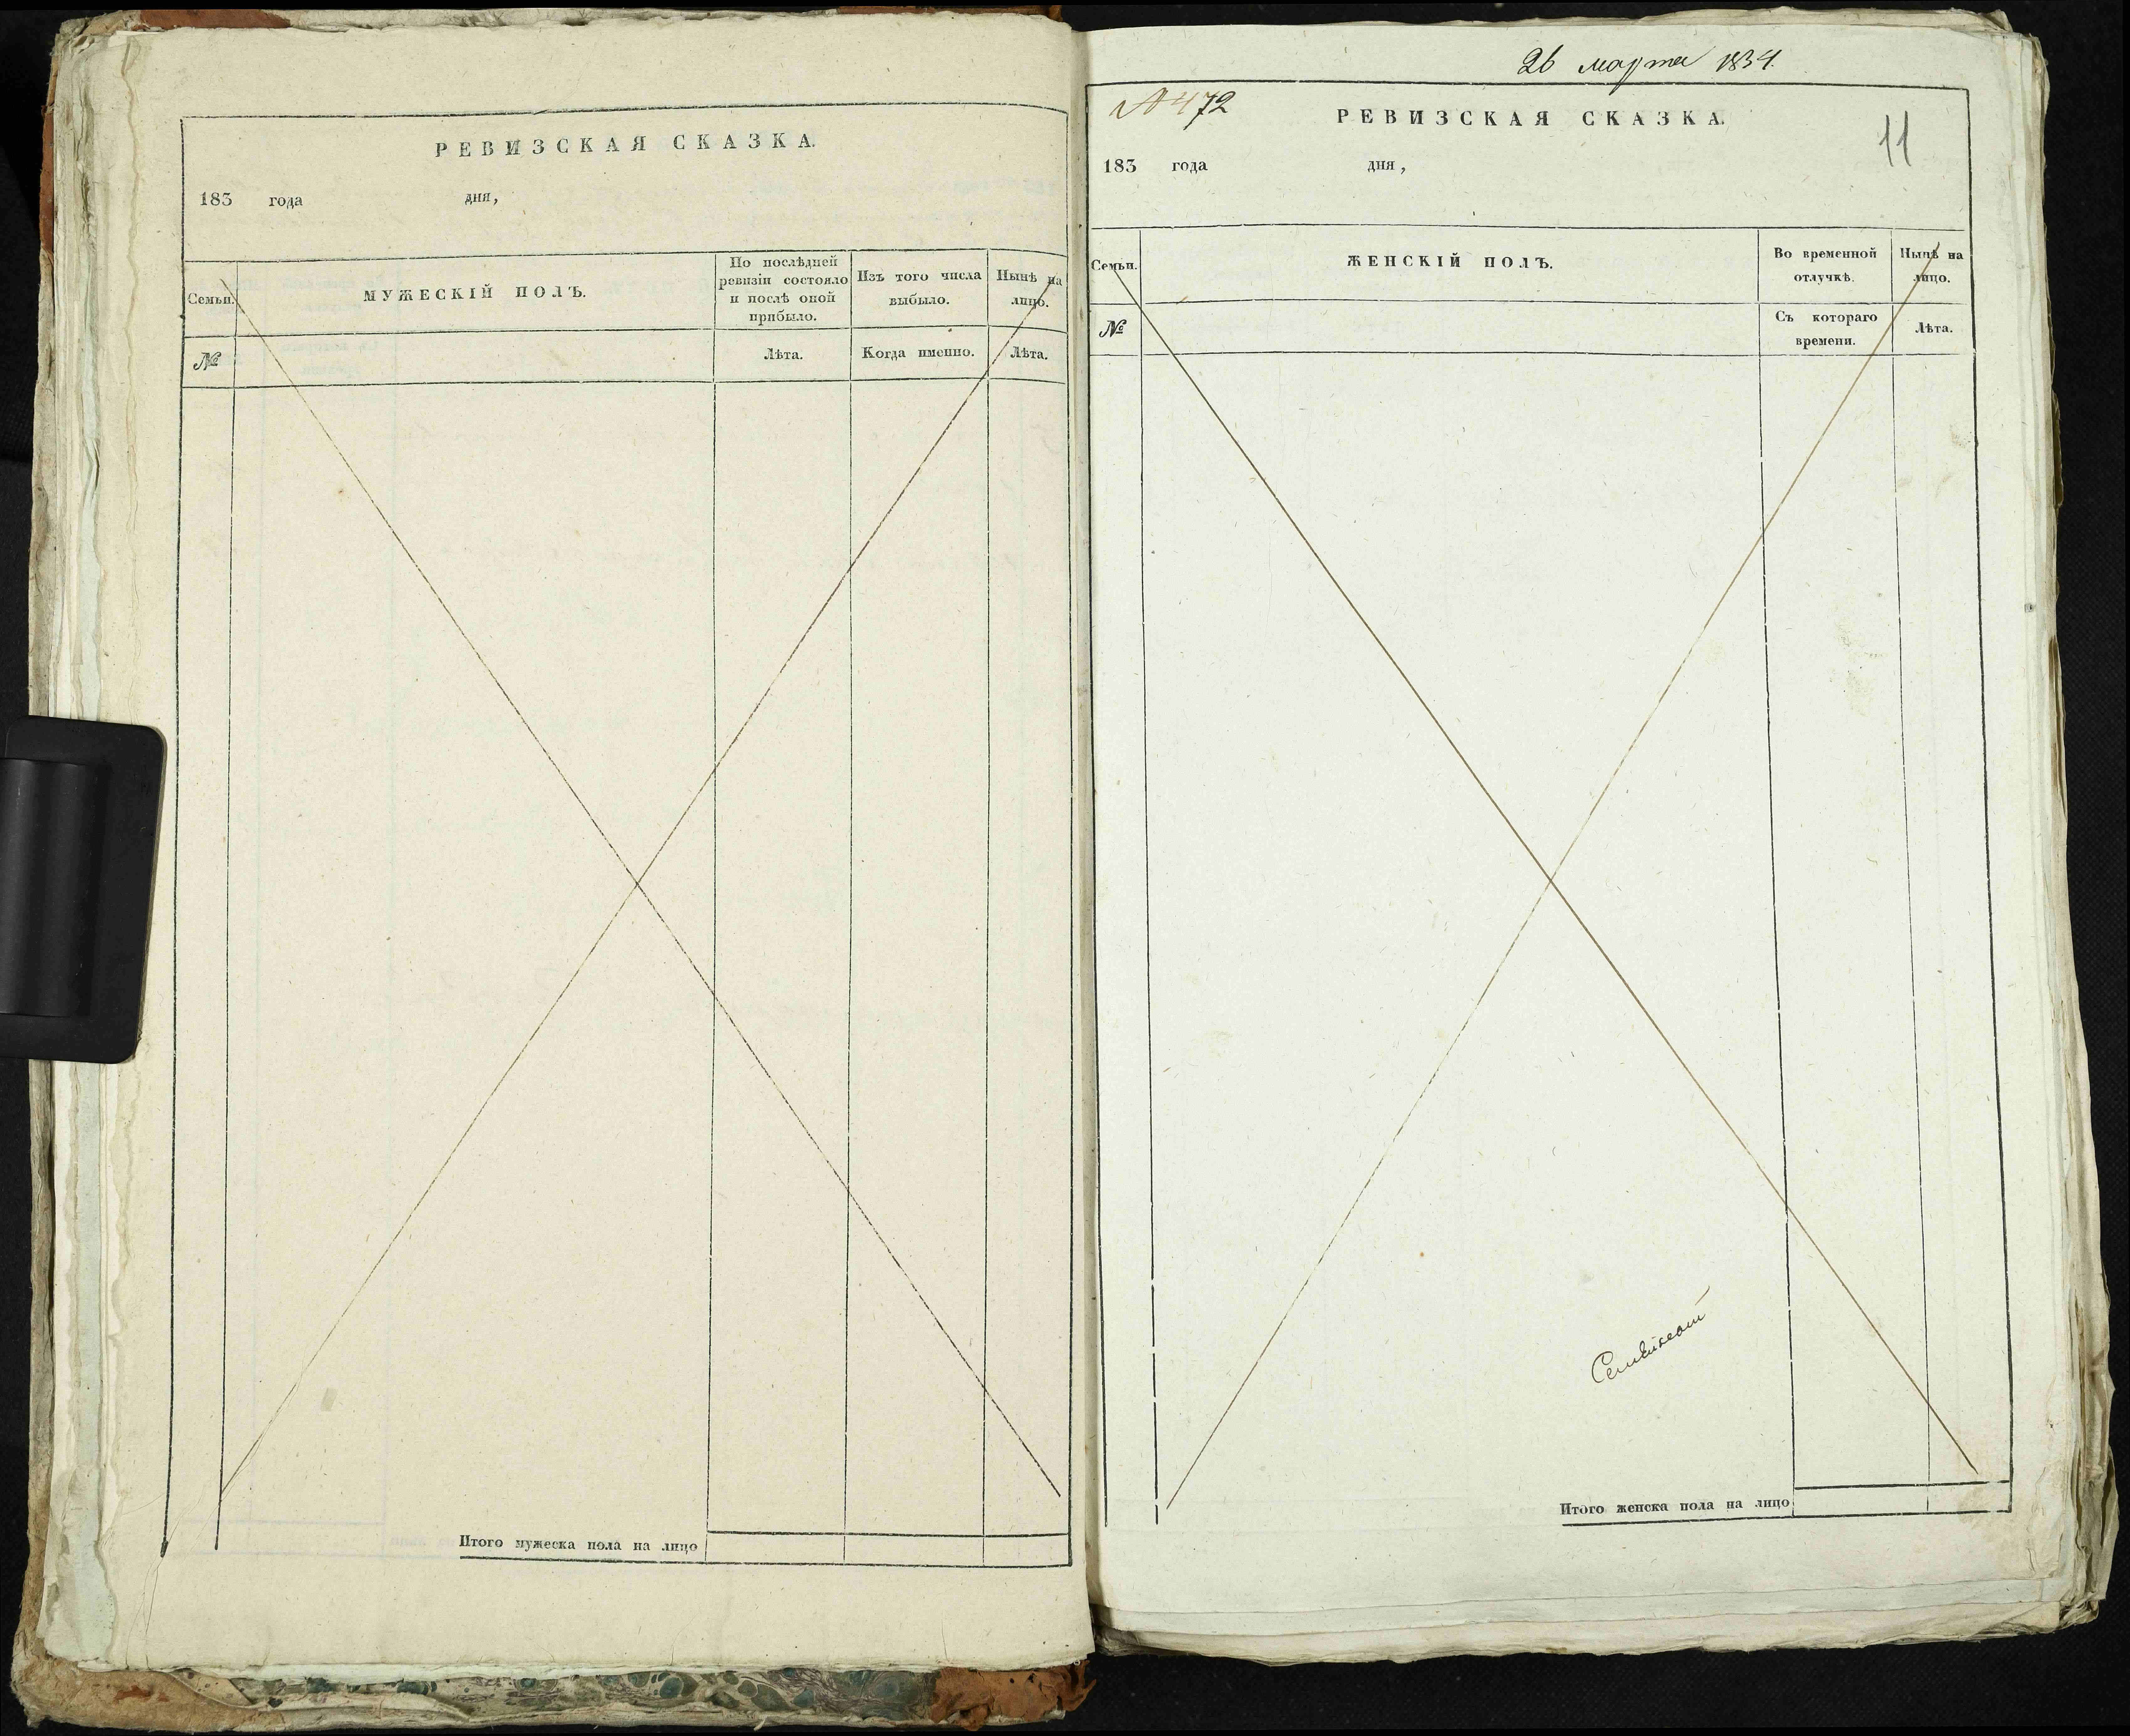 РЕВИЗСКАЯ СКАЗКА.
183 года дня,
Семьи. МУЖЕСКІЙ ПОЛЪ. По послѣдней ревизіи состояло и послѣ оной прибыло. Изъ того числа выбыло. Нынѣ на лицо.
№ Лѣта. Когда именно. Лѣта.
Итого мужеска пола на лицо
26 марта 1834.
№ 472
РЕВИЗСКАЯ СКАЗКА.
11
183 года дня,
Семьи. ЖЕНСКІЙ ПОЛЪ. Во временной отлучкѣ. Нынѣ на лицо.
№ Съ котораго времени. Лѣта.
Итого женска пола на лицо